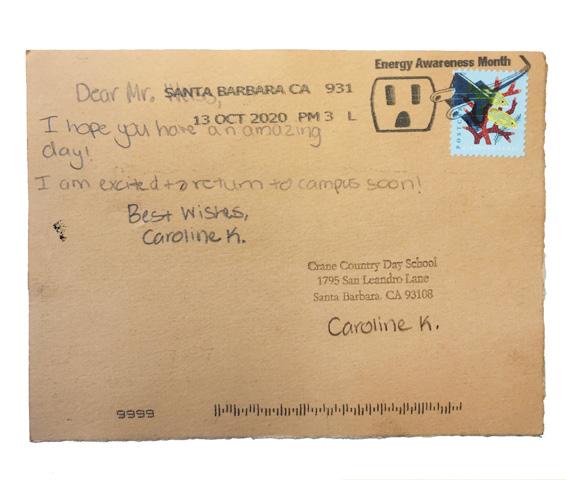 Energy Awareness Month
Dear Mr.
SANTA BARBARA CA 931
13 OCT 2020 PM 3 L
I hope you have an amazing
day!
I am excited to return to campus soon!
Best Wishes,
Caroline K.
Crane Country Day School
1795 San Leandro Lane
Santa Barbara, CA 93108
Caroline K.
9999